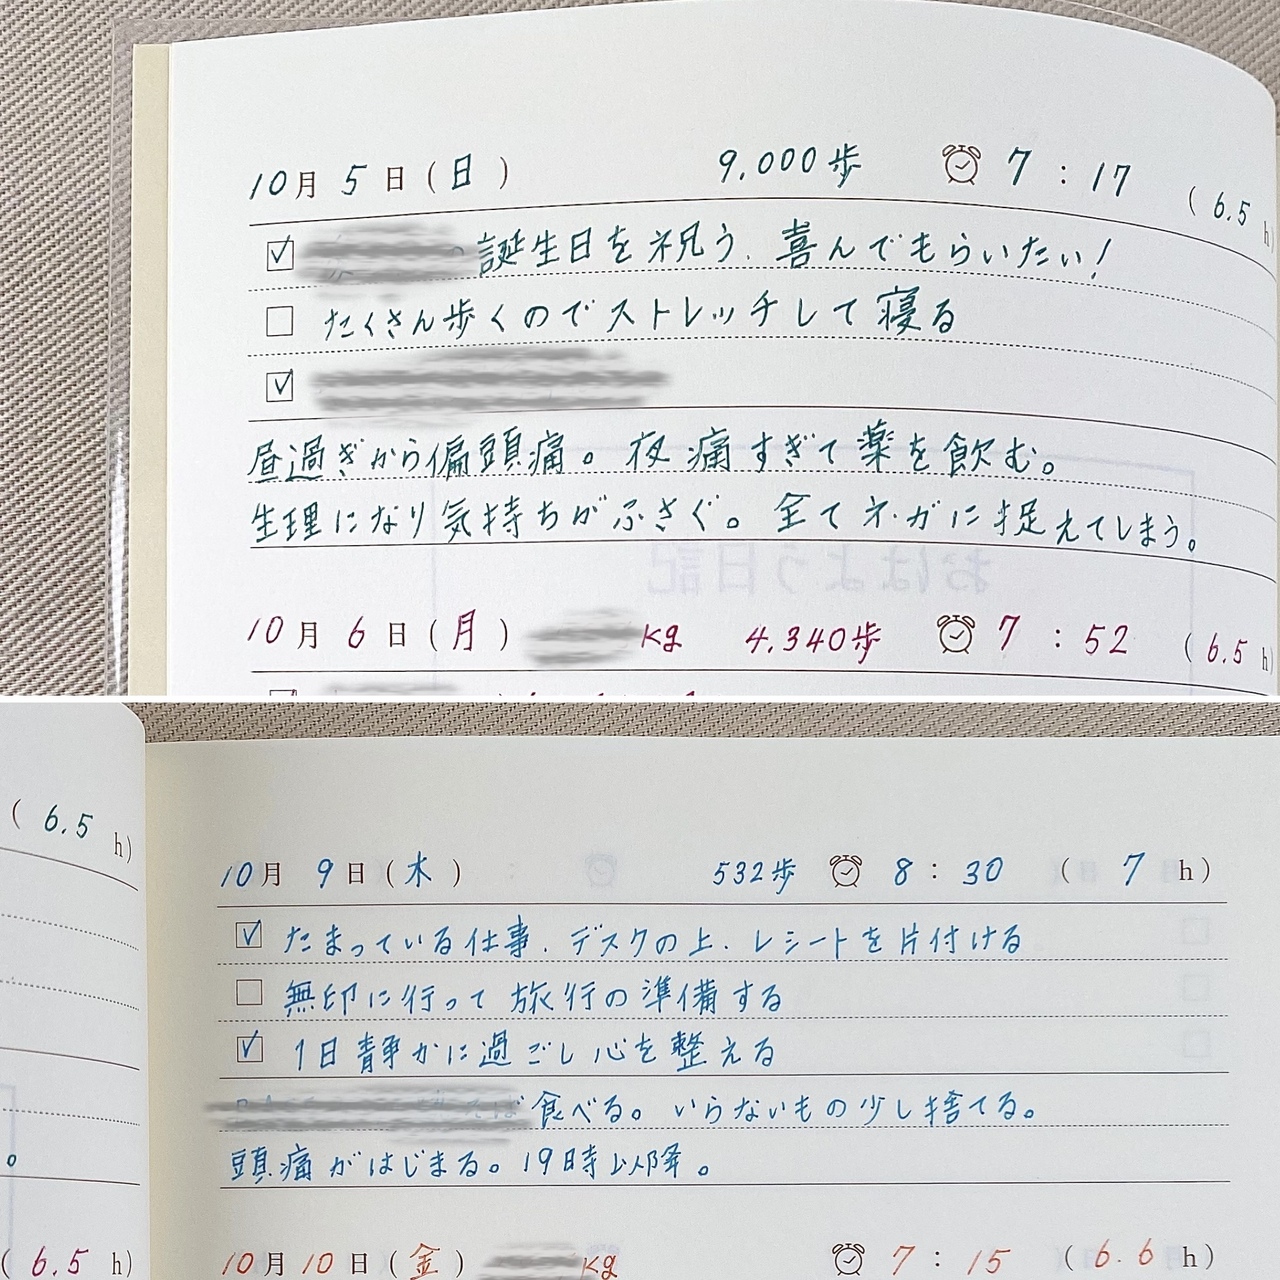 10月 5日(日) 9,000歩 7:17 (6.5h)
☑ 誕生日を祝う、喜んでもらいたい!
☐ たくさん歩くのでストレッチして寝る
☑
昼過ぎから偏頭痛。夜痛すぎて薬を飲む。
生理になり気持ちがふさぐ。全てネガに捉えてしまう。
おはよう日記
10月 6日(月) kg 4,340歩 7:52 (6.5h)
(6.5h)
10月 9日(木) 532歩 8:30 (7h)
☑ たまっている仕事、デスクの上、レシートを片付ける
☐ 無印に行って旅行の準備する
☑ 1日静かに過ごし心を整える
食べる。いらないもの少し捨てる。
頭痛がはじまる。19時以降。
(6.5h)
10月 10日(金) kg 7:15 (6.6h)